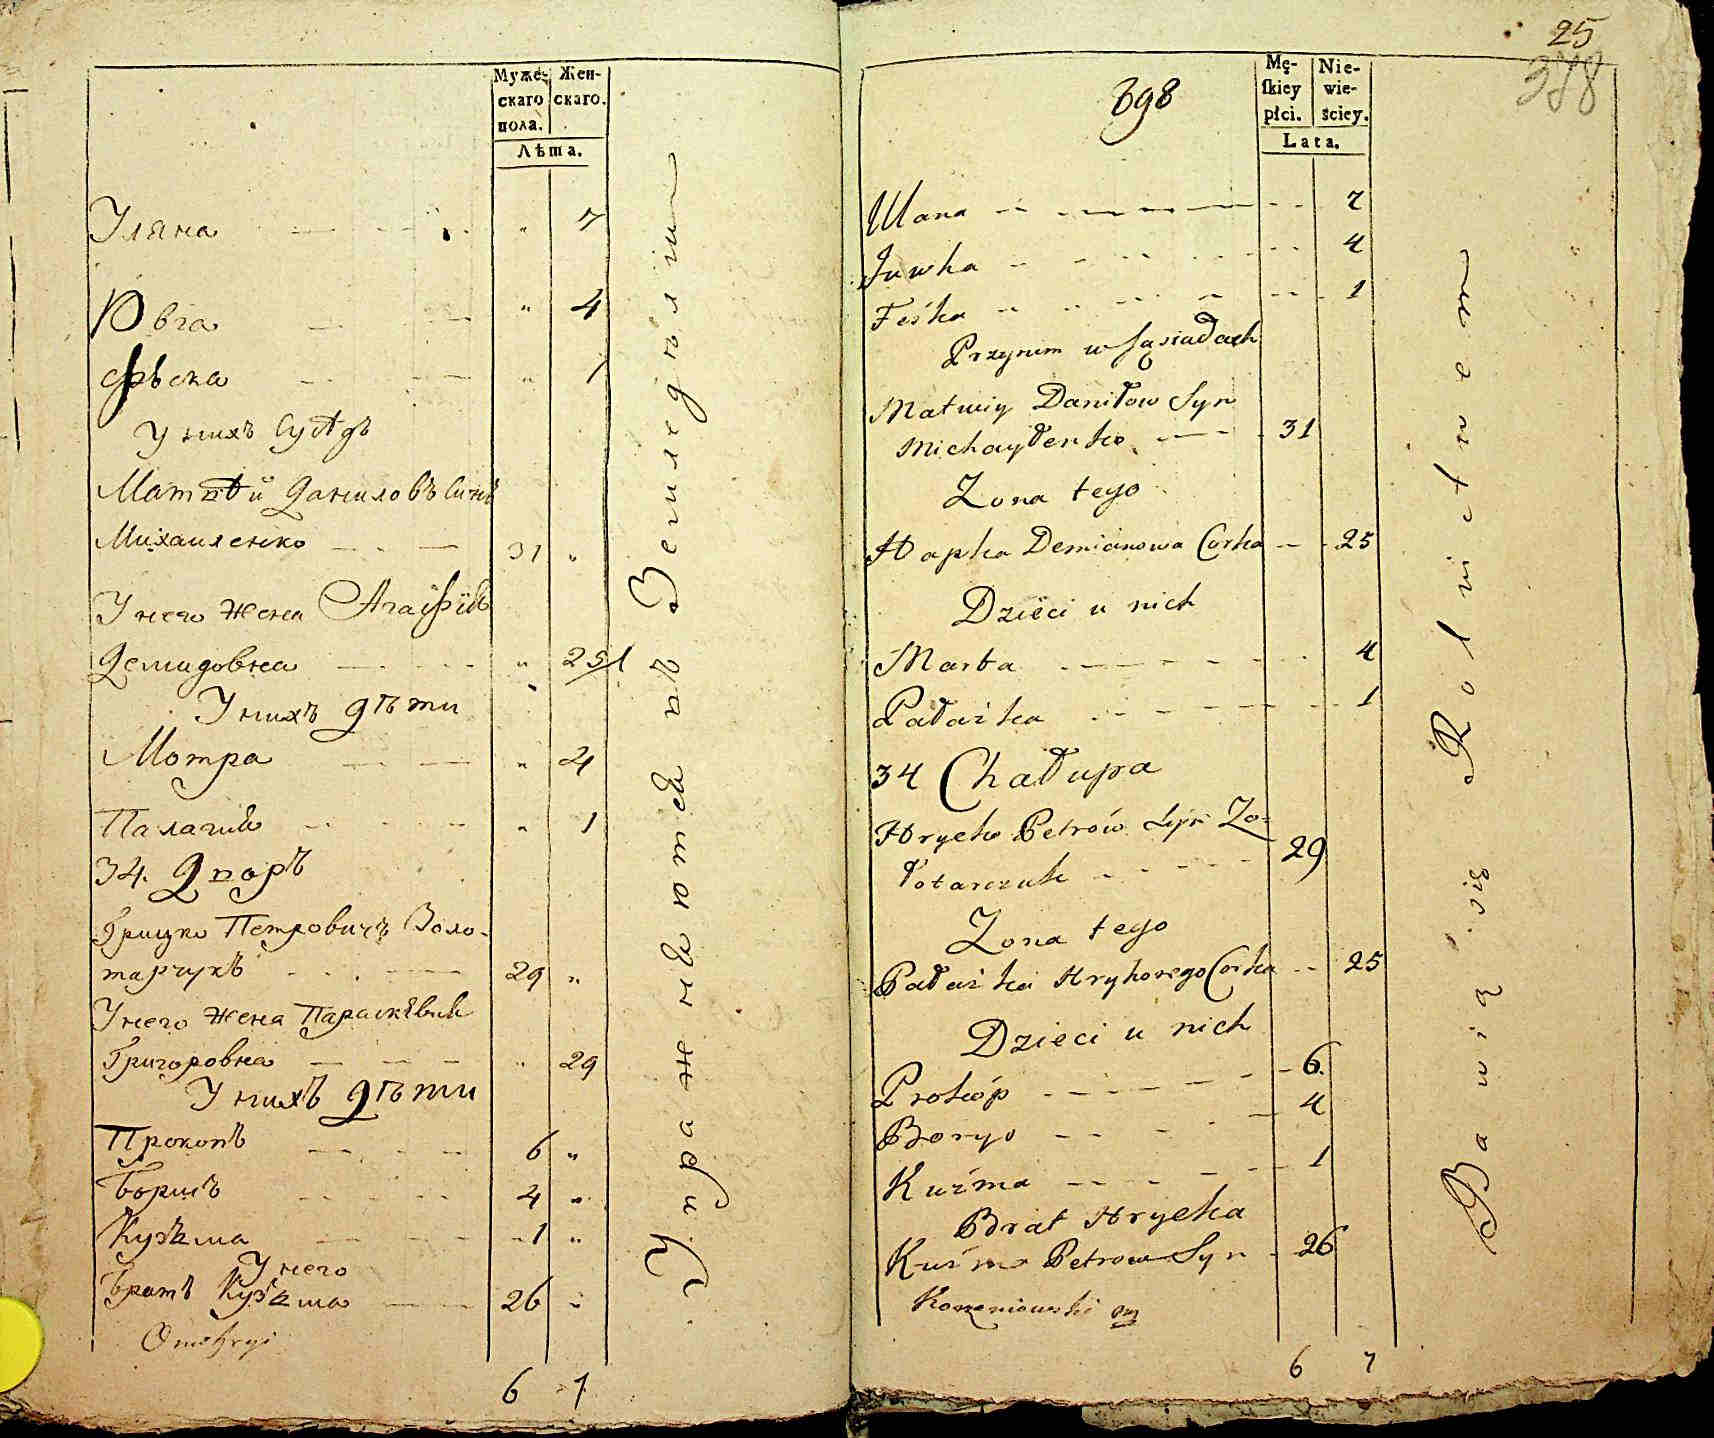 Муже- Жен-
скаго скаго.
пола.
Лѣта.
Уляна " 7
Ювга " 4
Фѣска " 1
У нихъ Сусѣдъ
Матвѣй Даниловъ Синъ
Михаиленко 31 "
У него Жена Агафія
Демидовна " 25
У нихъ дѣти
Мотра " 4
Палагия " 1
34. Дворъ
Грицко Петровичъ Золо-
тарчукъ 29 "
У него Жена Параскѣвия
Григоровна " 29
У нихъ дѣти
Прокопъ 6 "
Борисъ 4 "
Кузьма 1 "
У него
Братъ Кузьма 26 "
6 7
Упражняются въ Земледѣліи
25
378
398
Mę- Nie-
skiey wie-
płci. ściey.
Lata.
Ulana 7
Juwha 4
Feśka 1
Przynim w Sąsiadach
Matwiy Daniłow Syn
Michayłenko 31
Zona tego
Hapka Demianowa Corka 25
Dzieci u nich
Marta 4
Pałazka 1
34 Chałupa
Hrycko Petrów Syn Zo-
łotarczuk 29
Zona tego
Pałazka Hryhorego Corka 25
Dzieci u nich
Prokóp 6.
Borys 4
Kuźma 1
Brat Hrycka
Kuźma Petrow Syn 26
Korzeniowski
6 7
Bawią się Rolnictwem